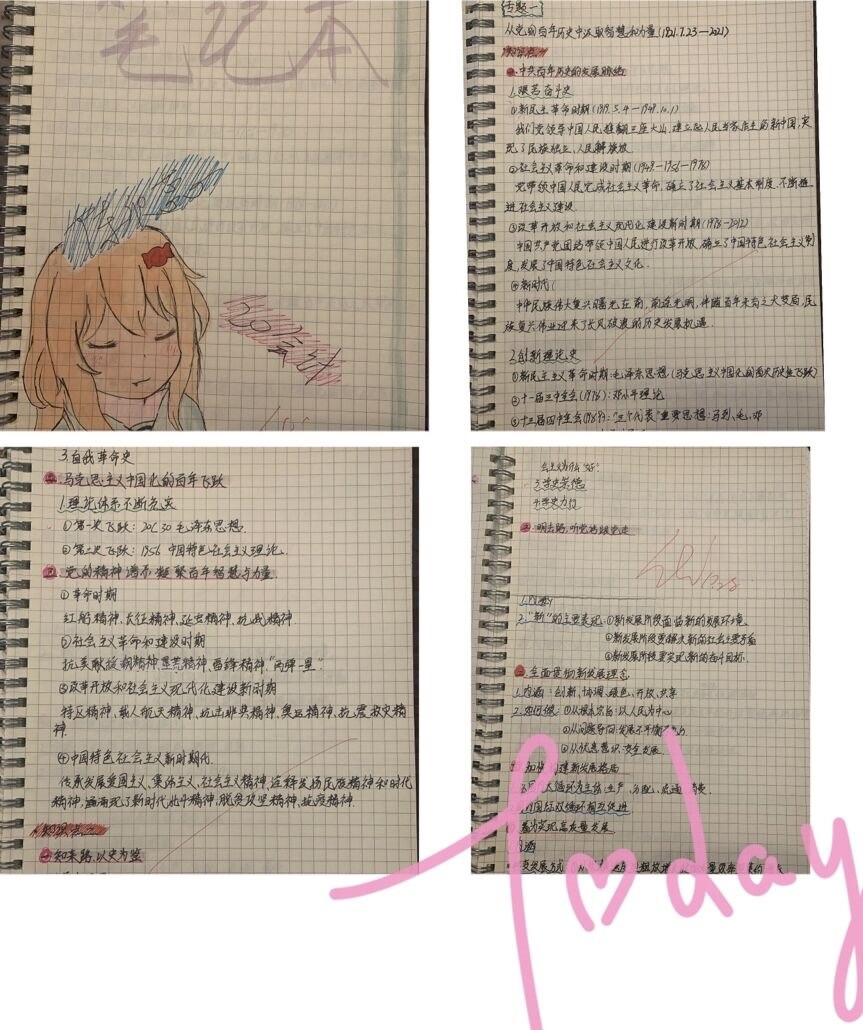 笔记本
20会计
专题一
从党的百年历史中汲取智慧和力量(1921.7.23—2021)
知识点一
一.中共百年历史的发展脉络
1.艰苦奋斗史
①新民主革命时期(1919.5.4—1949.10.1)
我们党领导中国人民推翻三座大山,建立起人民当家店主的新中国,实
现了民族独立、人民解放
②社会主义革命和建设时期(1949—1956—1978)
党带领中国人民完成社会主义革命,确立了社会主义基本制度,不断推
进社会主义建设.
③改革开放和社会主义现代化建设新时期(1978—2012)
中国共产党团结带领中国人民进行改革开放,确立了中国特色社会主义制
度,发展了中国特色社会主义文化.
④新时代(
中华民族伟大复兴曙光在前,前途光明,伴随百年未有之大变局,民
族复兴伟业迎来了长风破浪的历史发展机遇.
2.创新理论史
①新民主主义革命时期:毛泽东思想(马克思主义中国化的首次历史性飞跃)
②十一届三中全会(1978):邓小平理论
③十三届四中全会(1989):"三个代表"重要思想:马列、毛、邓
3.自我革命史
二.马克思主义中国化的百年飞跃
1.理论体系不断充实
①第一次飞跃:20C30 毛泽东思想.
②第二次飞跃:1956 中国特色社会主义理论.
三.党的精神谱系凝聚百年智慧与力量.
①革命时期
红船精神、长征精神、延安精神、抗战精神.
②社会主义革命和建设时期
抗美援朝精神、雷锋精神、"两弹一星"
③改革开放和社会主义现代化建设新时期
特区精神、载人航天精神、抗击非典精神、奥运精神、抗震救灾精
神.
④中国特色社会主义新时代.
传承发展爱国主义、集体主义、社会主义精神,诠释发扬民族精神和时代
精神,涌现了新时代北斗精神、脱贫攻坚精神、抗疫精神.
知识点二
一知来路,以史为鉴
会主义为什么"好"
3.学史崇德
4.学史力行
三.明去路,听党话跟党走
1.内涵
2."新"的主要表现:①新发展阶段面临新的发展环境.
②新发展阶段要解决新的社会主要矛盾
③新发展阶段要实现新的奋斗目标.
二.全面贯彻新发展理念
1.内涵:创新、协调、绿色、开放、共享
2.如何做:①从根本宗旨:以人民为中心
②从问题导向:发展不平衡
③从忧患意识:安全发展.
建新发展格局
循环为主体:生产、分配、流通、消费.
国际双循环相互促进
实现高质量发展
内涵
发展方式
Today